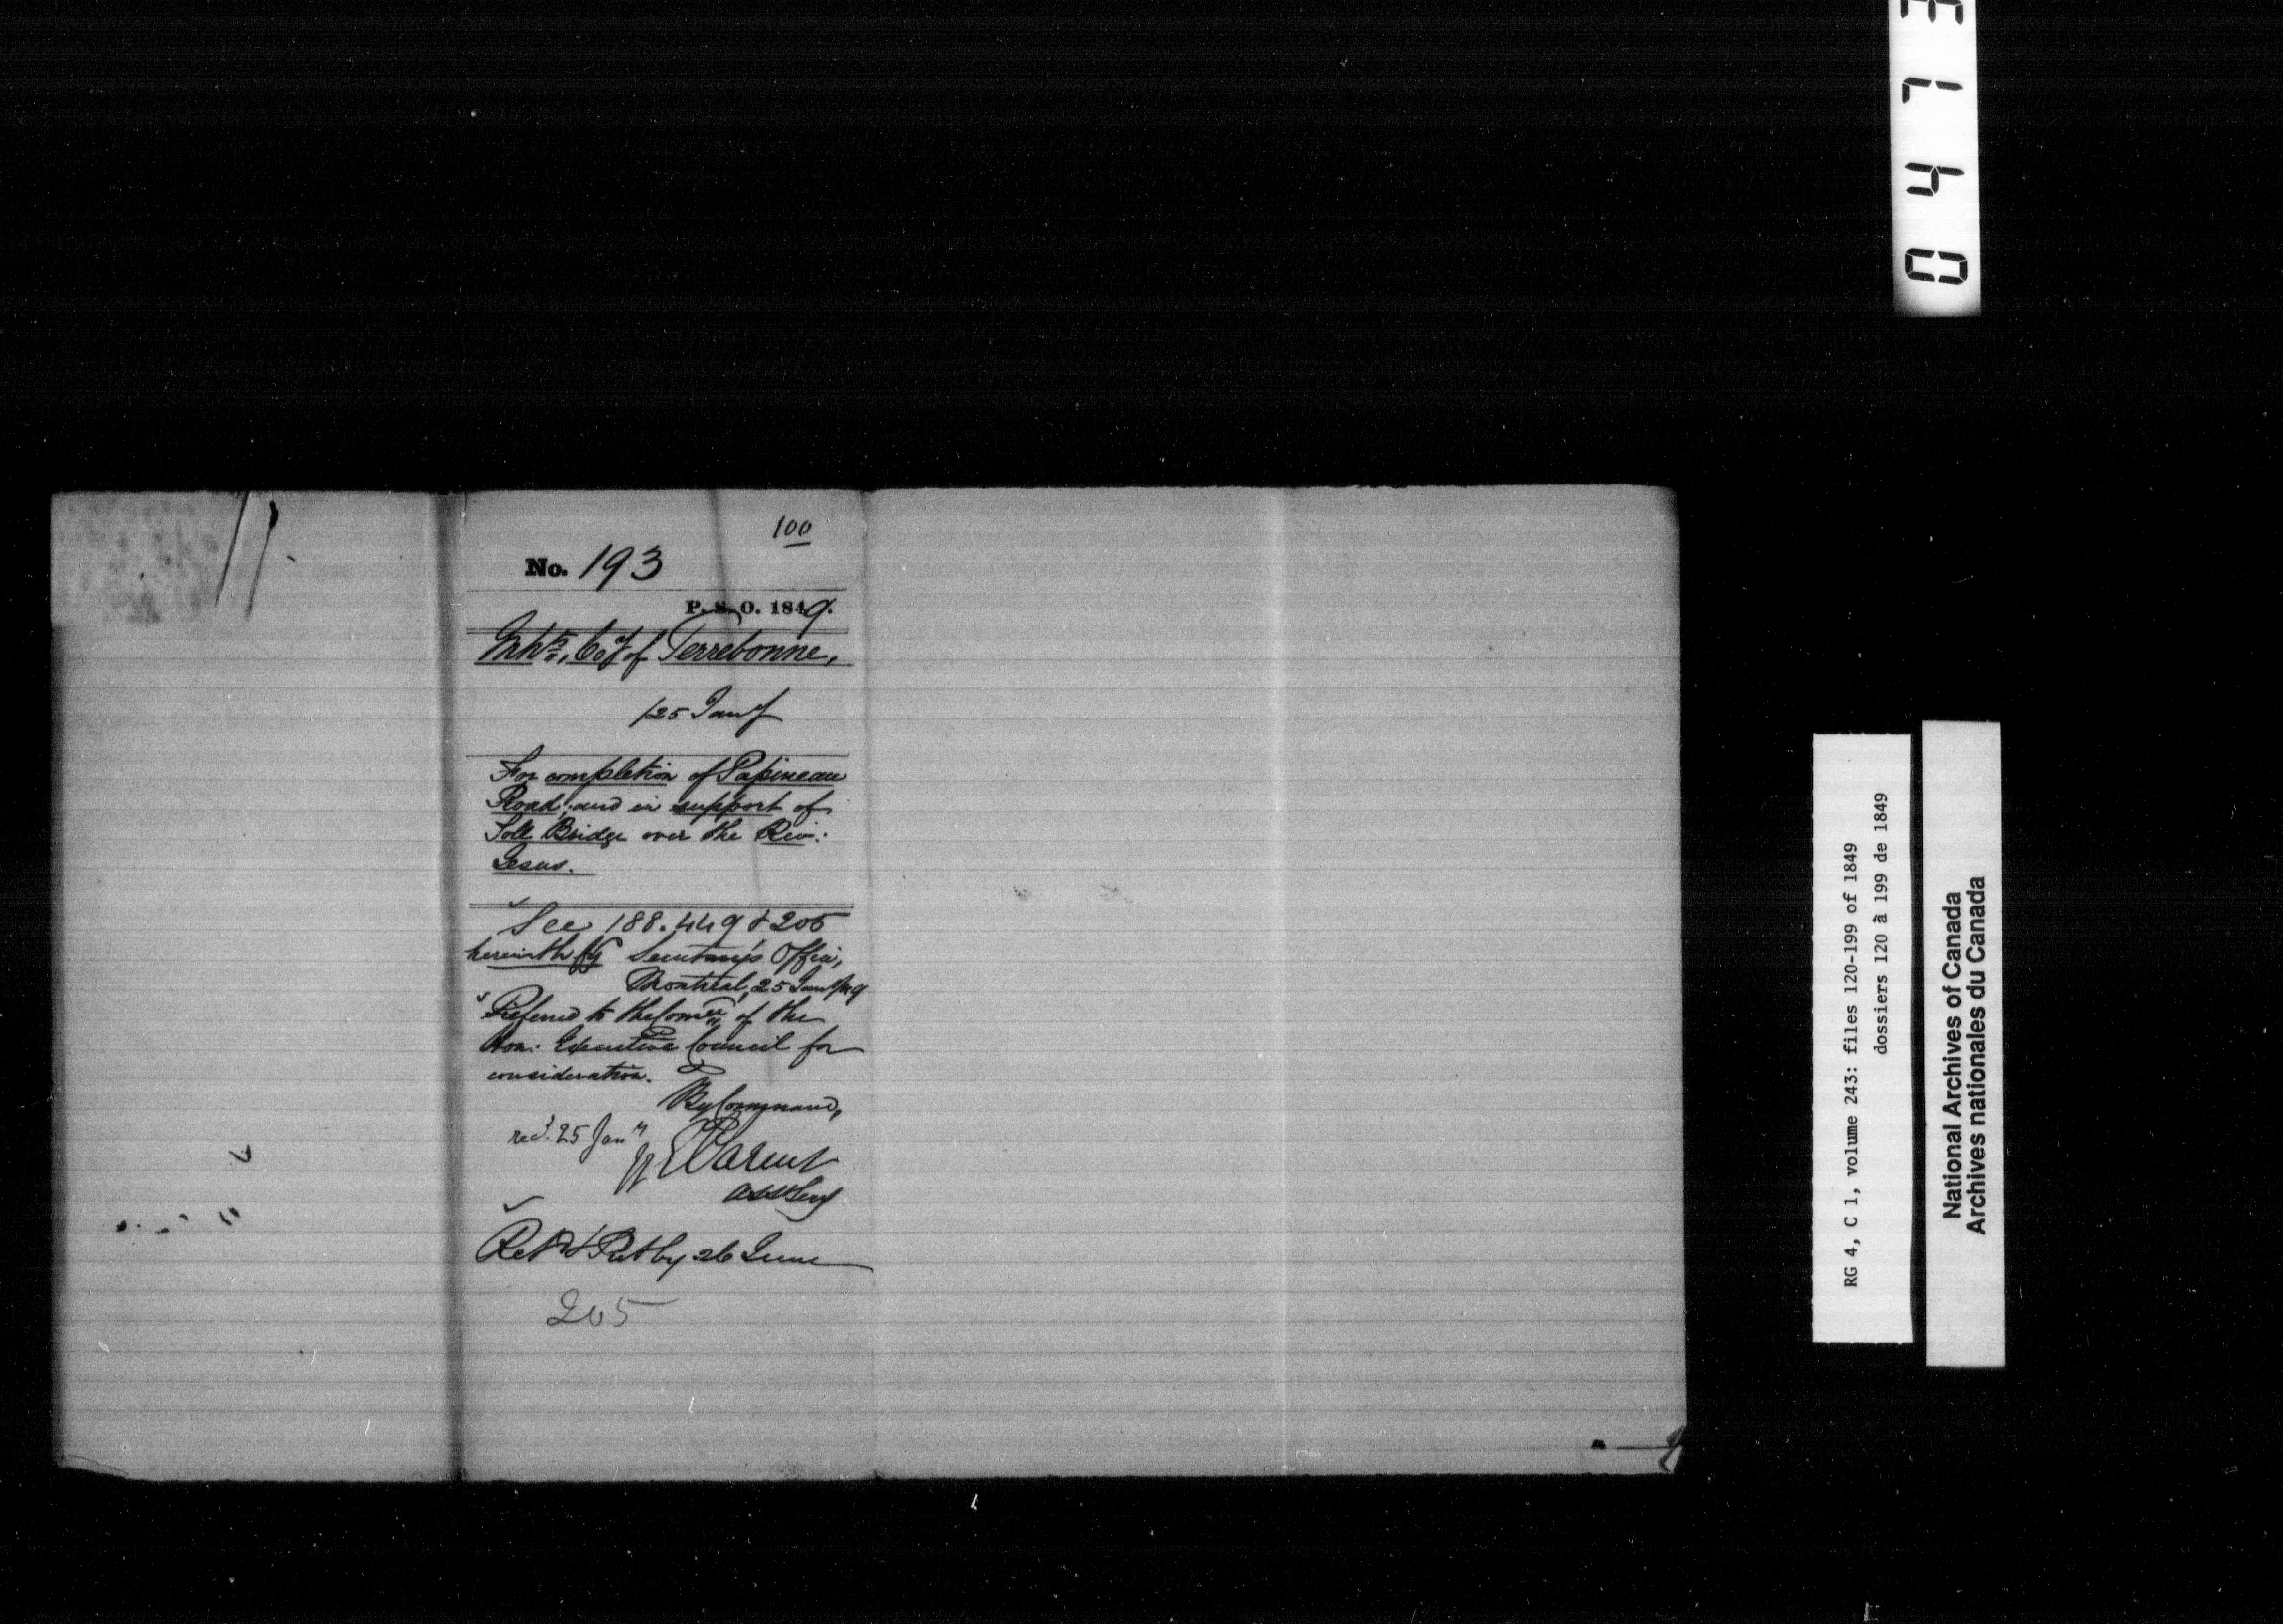 100
No. 193
P. S. O. 1849.
Inhts, Coy of Terrebonne,
/25 Jany
For completion of Papineau
Road; and in support of
Toll Bridge over the Riv:
Jesus.
See 188. 449 & 205
herewith
Secretary's Office,
Montreal, 25 Jany /49
Referred to the Comee of the
Hon: Executive Council for
consideration.
By Command,
recd. 25 Jany
E Parent
Asst Secy
Retd & Put by 26 June
205
0473
RG 4, C 1, volume 243: files 120-199 of 1849
dossiers 120 à 199 de 1849
National Archives of Canada
Archives nationales du Canada